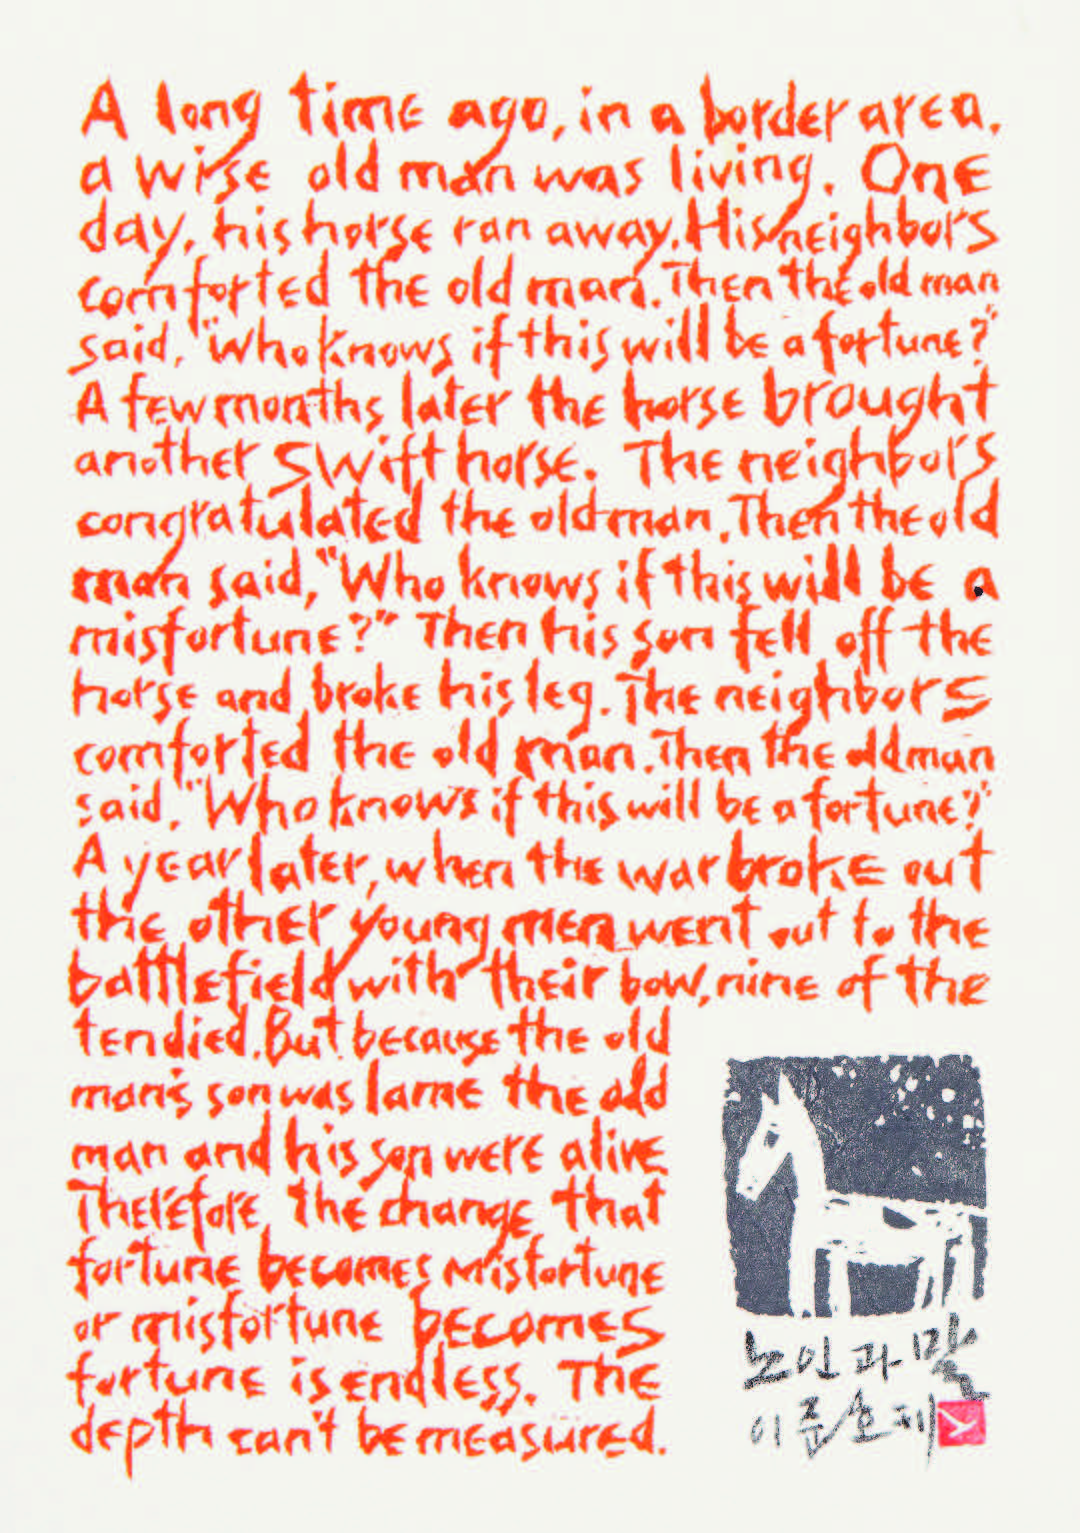 A long time ago, in a border area,
a wise old man was living. One
day, his horse ran away. His neighbors
comforted the old man. Then the old man
said, "Who knows if this will be a fortune?"
A few months later the horse brought
another swift horse. The neighbors
congratulated the old man. Then the old
man said, "Who knows if this will be a
misfortune?" Then his son fell off the
horse and broke his leg. The neighbors
comforted the old man. Then the old man
said, "Who knows if this will be a fortune?"
A year later, when the war broke out
the other young men went out to the
battlefield with their bow, nine of the
ten died. But because the old
man's son was lame the old
man and his son were alive
Therefore, the change that
fortune becomes misfortune
or misfortune becomes
fortune is endless. The
depth can't be measured.
노인과 말
이준호 제